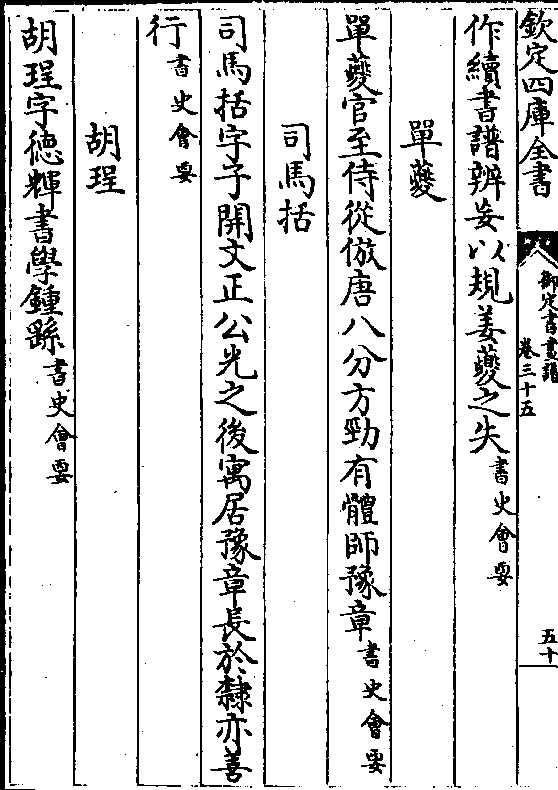 欽定四庫全書
御定書畫譜
卷三十五
五十
作續書譜辨妄以規姜夔之失書史會要
單夔
單夔官至侍從倣唐八分方勁有體師豫章書史會要
司馬括
司馬括字子開文正公光之後寓居豫章長於隸亦善
行書史會要
胡珵
胡珵字德輝書學鍾繇書史會要